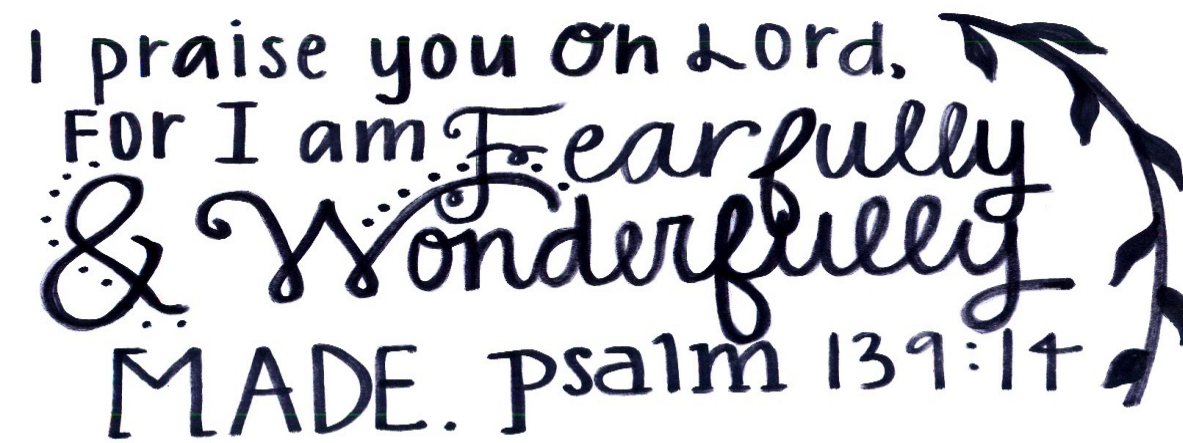 I praise you Oh Lord,
For I am Fearfully
& Wonderfully
MADE. Psalm 139:14